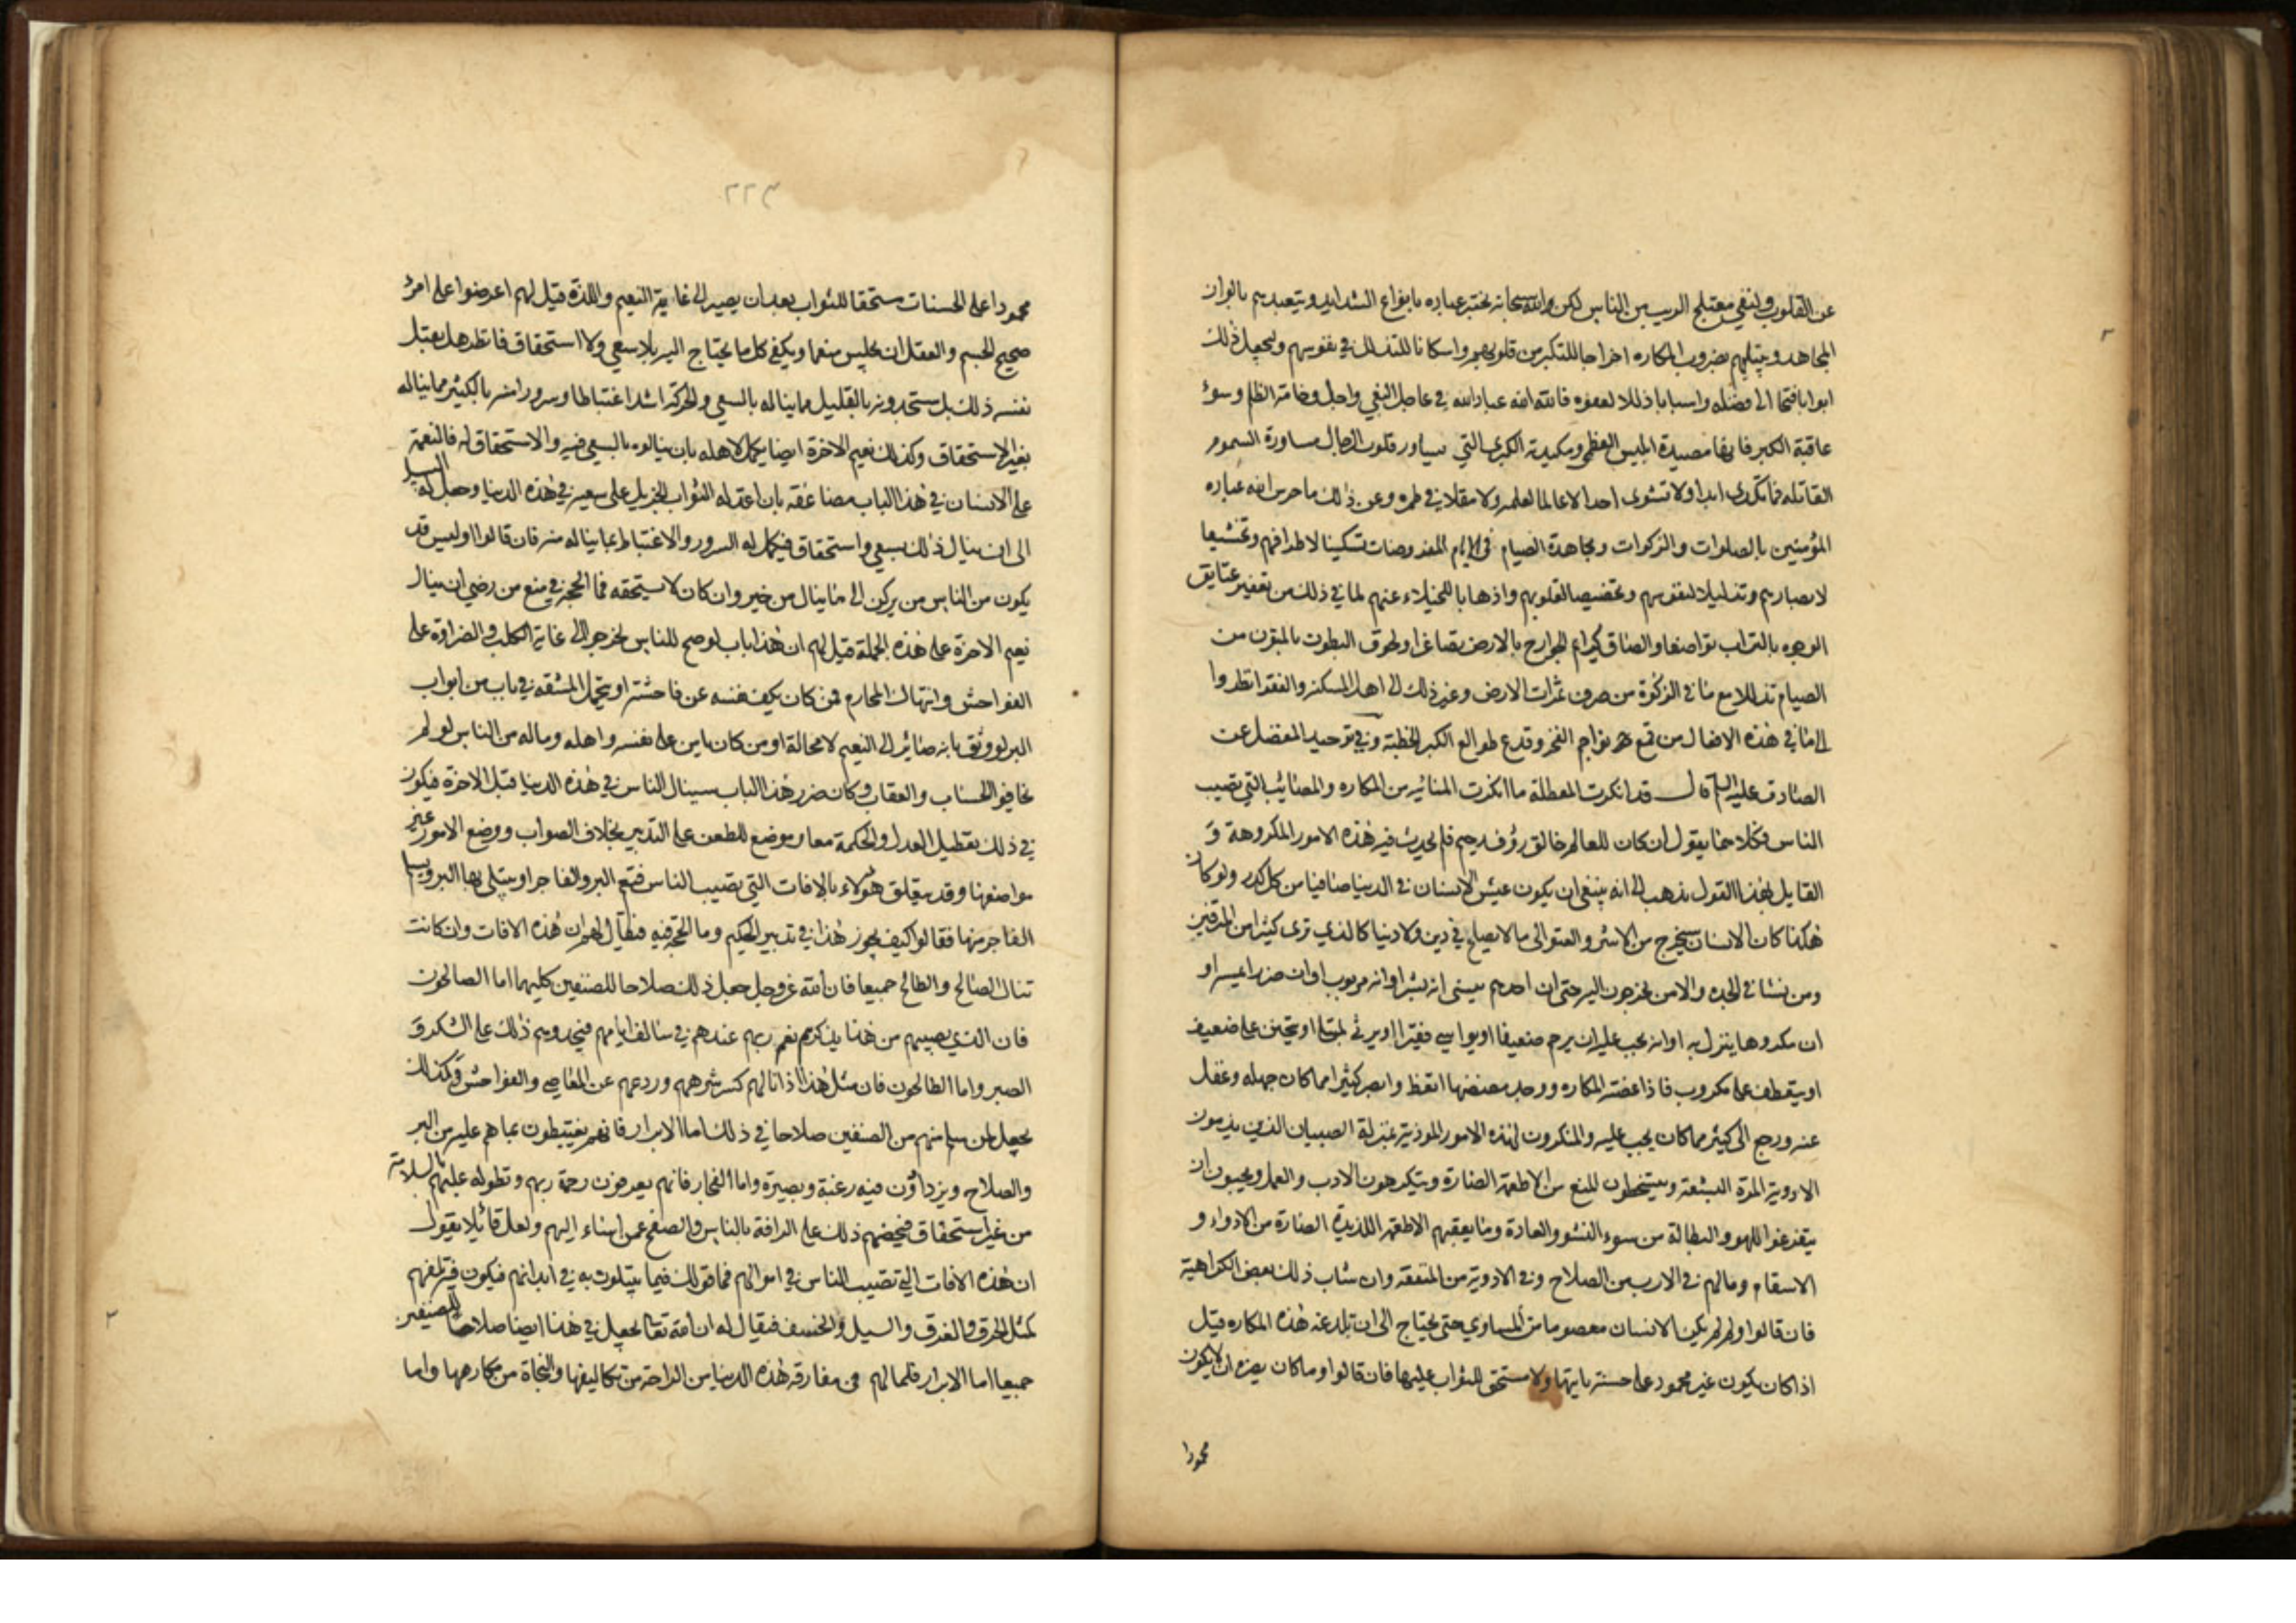 عن القلوب ولنفي معتلج الريب من الناس لكن الله سبحانه يختبر عباده بانواع الشدايد ويتعبدهم بالوان
المجاهد ويبتليهم بضروب المكاره اخراجا للتكبر من قلوبهم واسكانا للتذلل في نفوسهم وليجعل ذلك
ابوابا فتحا الى فضله واسبابا ذللا لعفوه فالله الله عباد الله في عاجل البغي واجل وخامة الظلم وسوء
عاقبة الكبر فانها مصيدة ابليس العظمى ومكيدته الكبرى التي تساور قلوب الرجال مساورة السموم
القاتله فما تكدى ابدا ولا تشوى احدا لا عالما لعلمه ولا مقلا في طمره وعن ذلك ما حرس الله عباده
المؤمنين بالصلوات والزكوات ومجاهدة الصيام في الايام المفروضات تسكينا لاطرافهم وتخشيعا
لابصارهم وتذليلا لنفوسهم وتخفيضا لقلوبهم واذهابا للخيلاء عنهم لما في ذلك من تعفير عتايق
الوجوه بالتراب تواضعا والصاق كرايم الجوارح بالارض تصاغرا ولحوق البطون بالمتون من
الصيام تذللا مع ما في الزكوة من صرف ثمرات الارض وغير ذلك الى اهل المسكنه والفقر انظروا
الى ما في هذه الافعال من قمع نواجم الفخر وقدع طوالع الكبر الخطبة وفي توحيد المفضل عن
الصادق عليه السلام قال قد انكرت المعطلة ما انكرت المنانيه من المكاره والمصائب التي تصيب
الناس فكلاهما يقول ان كان للعالم خالق رؤف رحيم فلم يحدث فيه هذه الامور المكروهة و
القايل بهذا القول يذهب الى انه ينبغي ان يكون عيش الانسان في الدنيا صافيا من كل كدر ولو كان
هكذا كان الانسان سيخرج من الاشر والعتو الى ما لا يصلح في دين ولا دنيا كالذي ترى كثيرا من المترفين
ومن نشا في الجده والامن يخرجون اليه حتى ان احدهم ينسى انه بشر او انه مربوب او ان ضررا يمسه او
ان مكروها ينزل به او انه يجب عليه ان يرحم ضعيفا او يواسي فقيرا او يرثى لمبتلى او يتحنن على ضعيف
او يتعطف على مكروب فاذا عضته المكاره ووجد مضضها اتعظ وابصر كثيرا مما كان جهله وغفل
عنه ورجع الى كثير مما كان يجب عليه والمنكرون لهذه الامور الموذية بمنزلة الصبيان الذين يذمون
الادوية المرة البشعة ويتسخطون للمنع من الاطعمة الضارة ويتكرهون الادب والعمل ويحبون ان
يتفرغوا للهو والبطالة من سوء النشو والعادة وما يعقبهم الاطعمة اللذيذة الضارة من الادواء و
الاسقام ومالهم في الادب من الصلاح وفي الادوية من المنفعه وان شاب ذلك بعض الكراهية
فان قالوا ولم لم يكن الانسان معصوما من المساوي حتى يحتاج الى ان تلدغه هذه المكاره قيل
اذا كان يكون غير محمود على حسنة ياتيها ولا مستحق للثواب عليها فان قالوا وما كان يضره ان لا يكون
محمودا
٢٢٤
محمودا على الحسنات مستحقا للثواب بعد ان يصير الى غاية النعيم واللذة قيل لهم اعرضوا على امرئ
صحيح الجسم والعقل ان يجلس منعما ويكفى كل ما يحتاج اليه بلا سعي ولا استحقاق فانظر هل يقبل
نفسه ذلك بل ستجدونه بالقليل مما يناله بالسعي والحركة اشد اغتباطا وسرورا منه بالكثير مما يناله
بغير الاستحقاق وكذلك نعيم الاخرة ايضا يكمل لاهله بان ينالوه بالسعي فيه والاستحقاق له فالنعمة
على الانسان في هذا الباب مضاعفة بان اعد له الثواب الجزيل على سعيه في هذه الدنيا وجعل له السبيل
الى ان ينال ذلك بسعي واستحقاق فيكمل له السرور والاغتباط بما يناله منه فان قالوا اوليس قد
يكون من الناس من يركن الى ما ينال من خير وان كان لا يستحقه فما الحجة في منع من رضي ان ينال
نعيم الاخرة على هذه الجملة قيل لهم ان هذا باب لو صح للناس لخرجوا الى غاية الكلب والضراوة على
الفواحش وانتهاك المحارم فمن كان يكف نفسه عن فاحشة او يتحمل المشقه في باب من ابواب
البر لو وثق بانه صائر الى النعيم لا محالة او من كان يامن على نفسه واهله وماله من الناس لو لم
يخافوا الحساب والعقاب وكان ضرر هذا الباب سينال الناس في هذه الدنيا قبل الاخرة فيكون
في ذلك تعطيل العدل والحكمة معا وموضع للطعن على التدبير بخلاف الصواب ووضع الامور غير
مواضعها وقد يتعلق هؤلاء بالافات التي تصيب الناس فتعم البر والفاجر او يبتلى بها البر ويسلم
الفاجر منها فقالوا كيف يجوز هذا في تدبير الحكيم وما الحجة فيه فيقال لهم ان هذه الافات وان كانت
تنال الصالح والطالح جميعا فان الله عز وجل جعل ذلك صلاحا للصنفين كليهما اما الصالحون
فان الذي يصيبهم من هذا يذكرهم نعم ربهم عندهم في سالف ايامهم فيحدوهم ذلك على الشكر و
الصبر واما الطالحون فان مثل هذا اذا نالهم كسر شرهم وردعهم عن المعاصي والفواحش وكذلك
يجعل لمن سلم منهم من الصنفين صلاحا في ذلك اما الابرار فانهم يغتبطون بما هم عليه من البر
والصلاح ويزدادون فيه رغبة وبصيرة واما الفجار فانهم يعرفون رحمة ربهم وتطوله عليهم بالسلامة
من غير استحقاق فيحضهم ذلك على الرافة بالناس والصفح عمن اساء اليهم ولعل قائلا يقول
ان هذه الافات التي تصيب الناس في اموالهم فما قولك فيما يبتلون به في ابدانهم فيكون فيه تلفهم
كمثل الحرق والغرق والسيل والخسف فيقال له ان الله تعالى يجعل في هذا ايضا صلاحا للصنفين
جميعا اما الابرار فلما لهم في مفارقة هذه الدنيا من الراحة من تكاليفها والنجاة من مكارهها واما